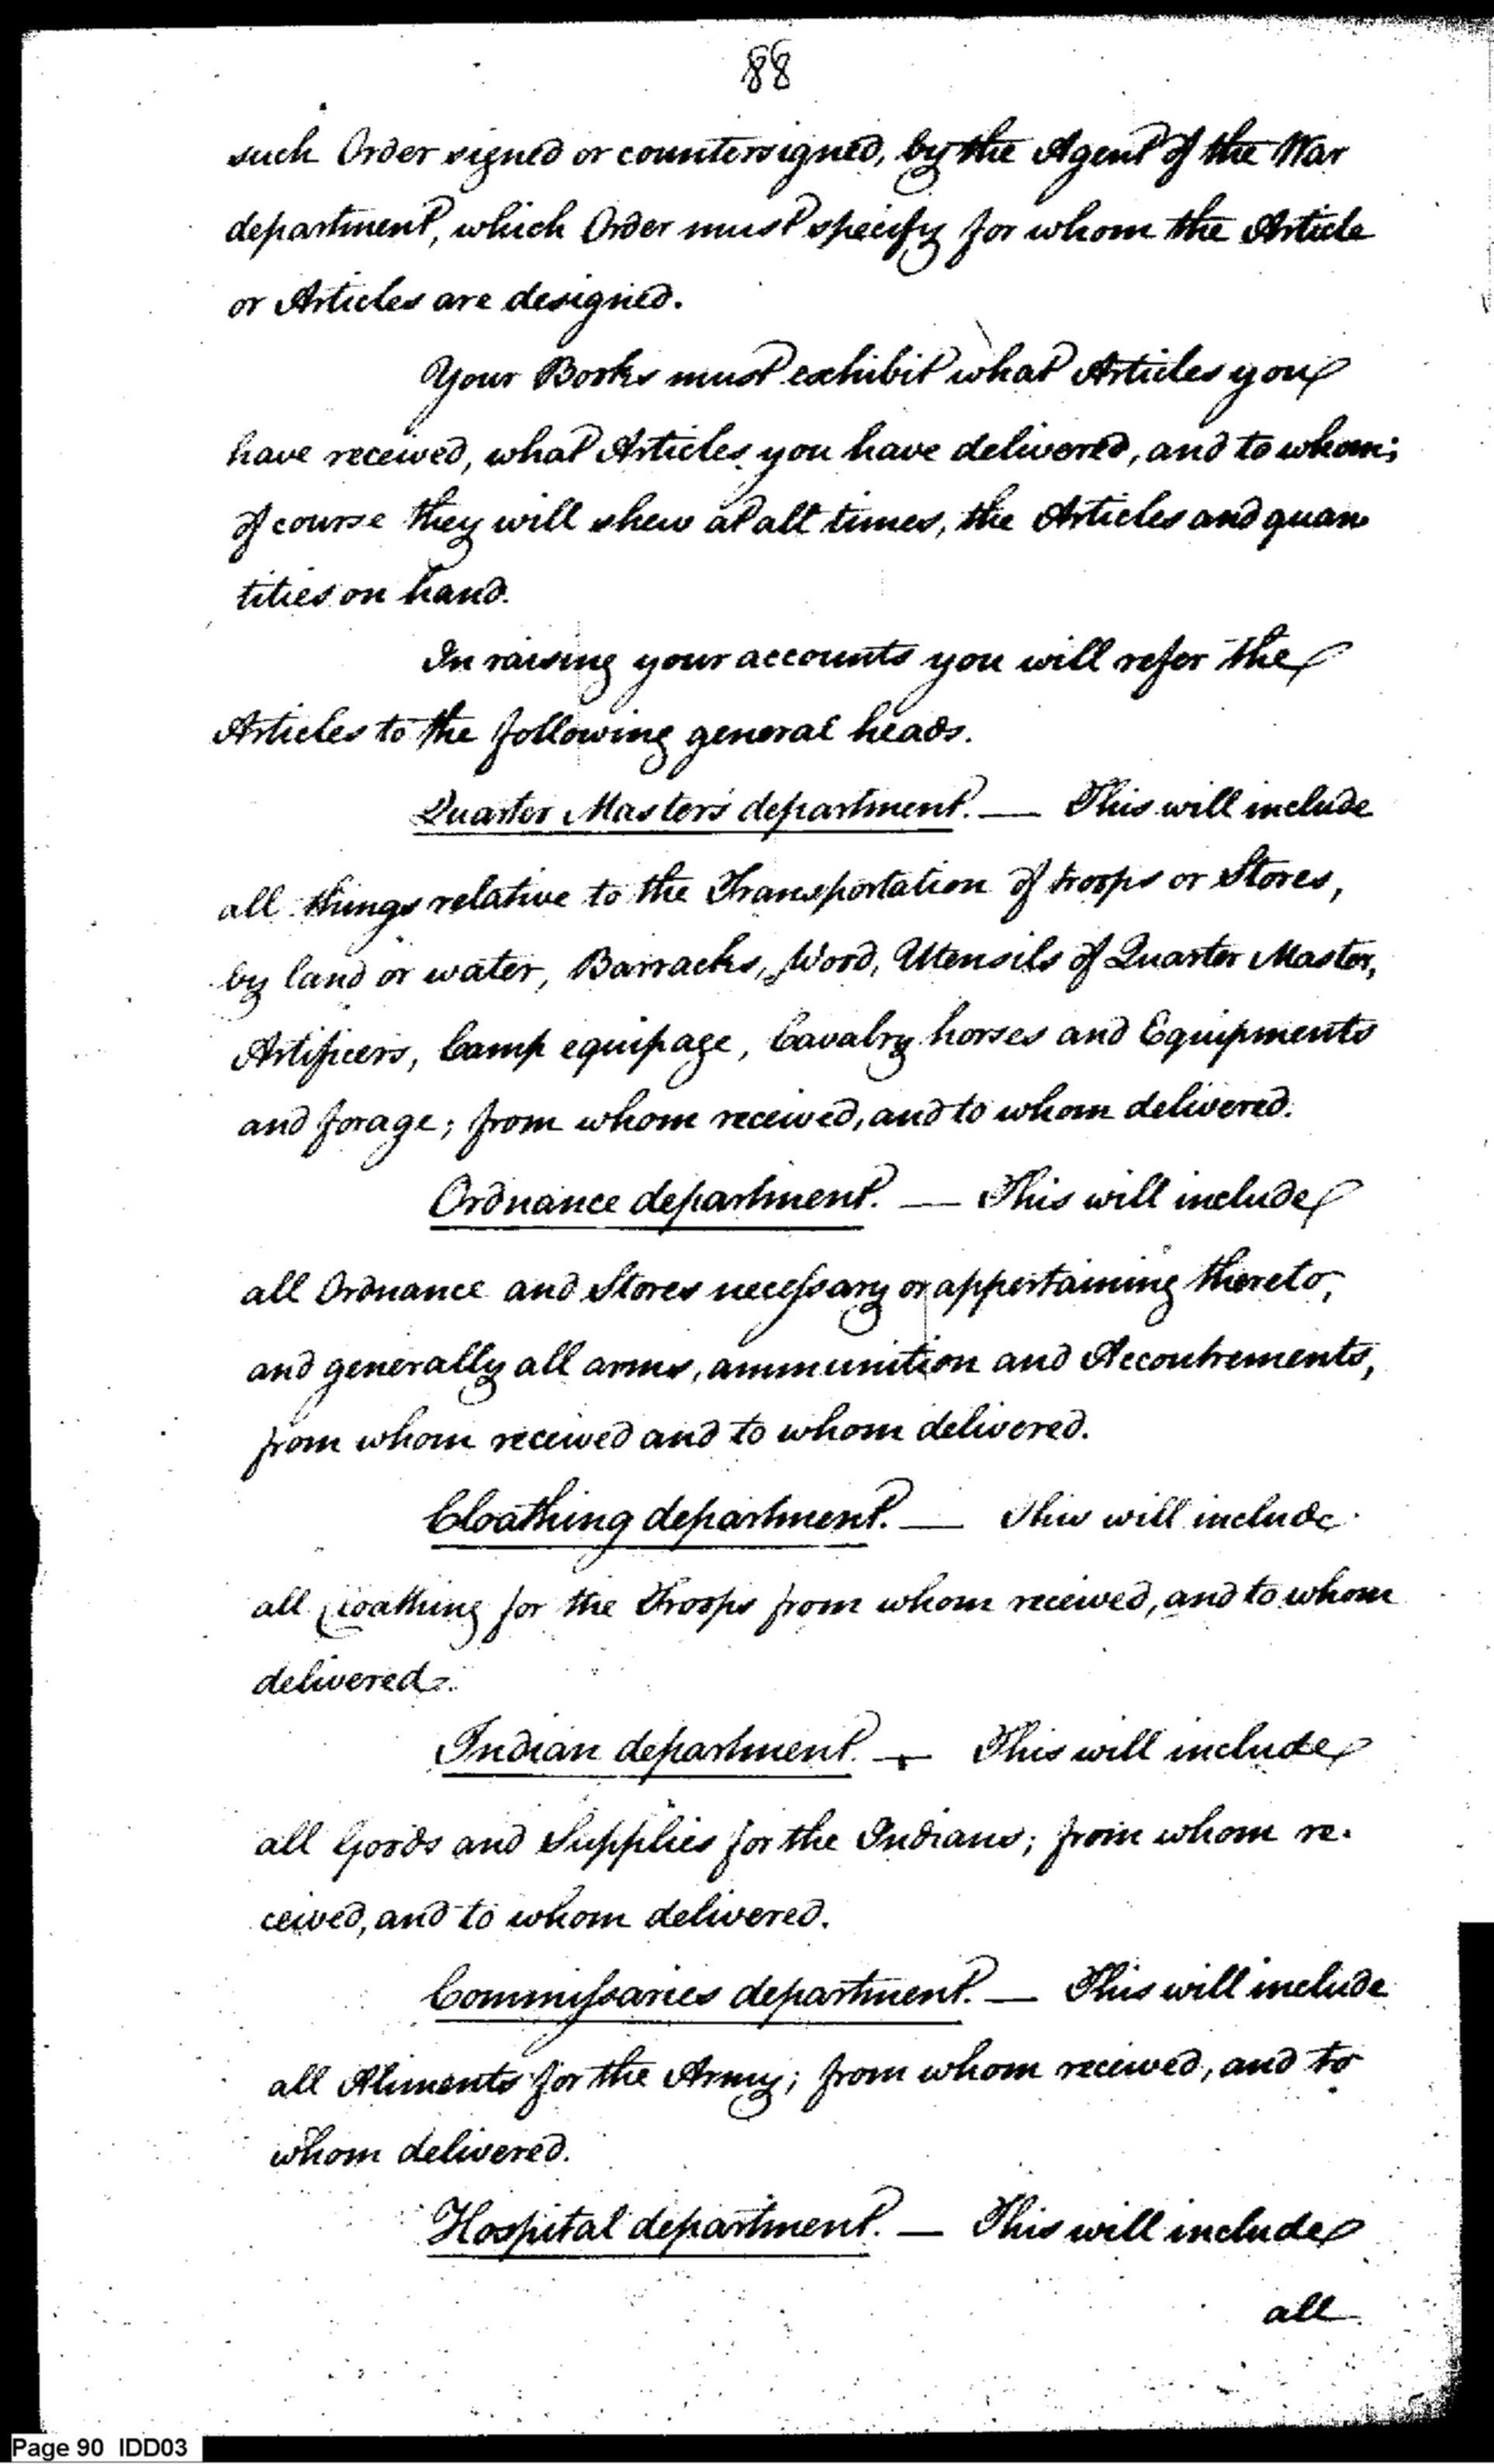 88
such Order signed or countersigned, by the Agent of the War
department, which Order must specify for whom the Article
or Articles are designed.
Your Books must exhibit what Articles you
have received, what Articles you have delivered, and to whom;
of course they will shew at all times, the Articles and quan
tities on hand.
In raising your accounts you will refer the
Articles to the following general heads.
Quarter Master's department. — This will include
all things relative to the Transportation of troops or Stores,
by land or water, Barracks, Wood, Utensils of Quarter Master,
Artificers, Camp equipage, Cavalry horses and Equipments
and forage; from whom received, and to whom delivered.
Ordnance department. — This will include
all Ordnance and Stores necessary or appertaining thereto,
and generally all arms, ammunition and Accoutrements,
from whom received and to whom delivered.
Cloathing department. — This will include
all Cloathing for the Troops from whom received, and to whom
delivered.
Indian department. — This will include
all Goods and Supplies for the Indians; from whom re-
ceived, and to whom delivered.
Commissaries department. — This will include
all Aliments for the Army; from whom received, and to
whom delivered.
Hospital department. — This will include
all
Page 90 IDD03